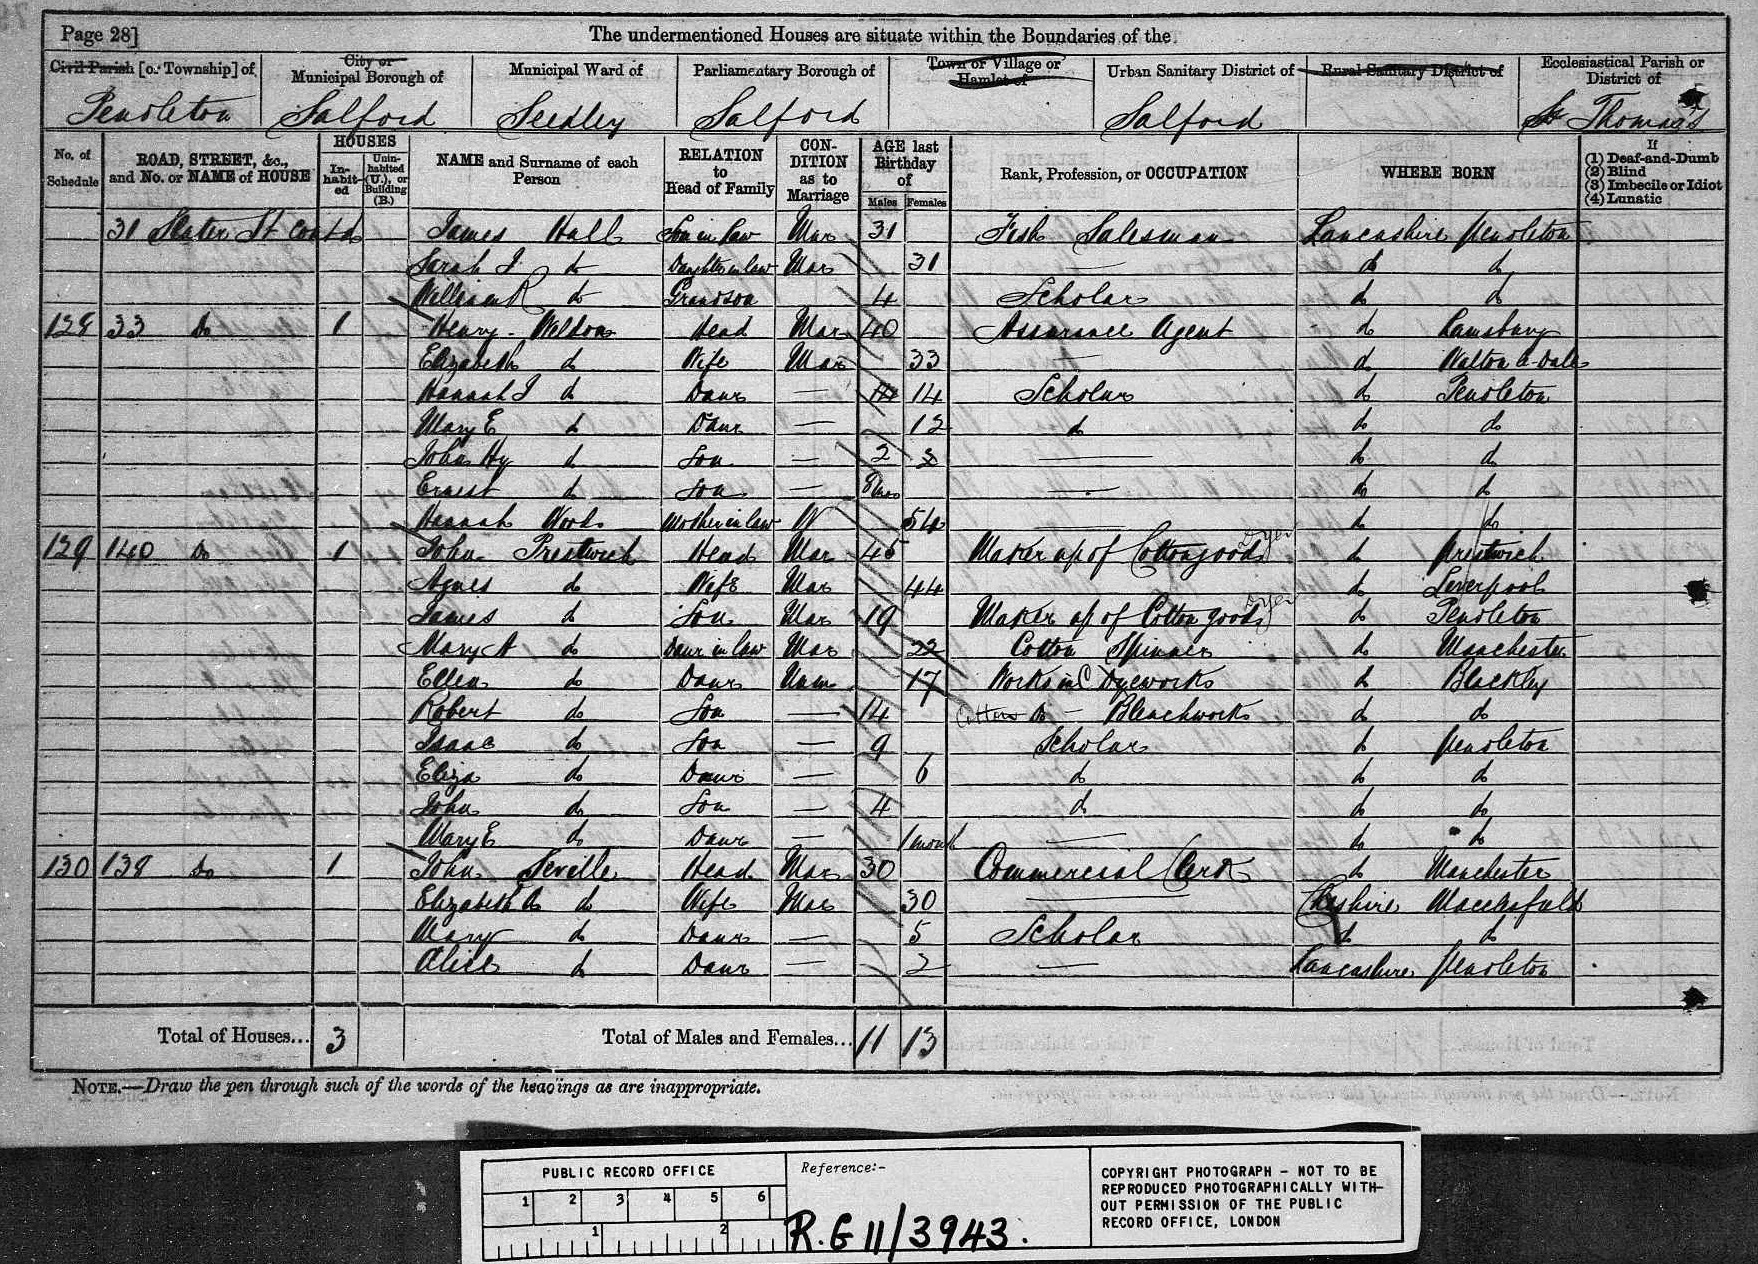 Page 28] The undermentioned Houses are situate within the Boundaries of the
Civil Parish [or Township] of City or Municipal Borough of Municipal Ward of Parliamentary Borough of Town or Village or Hamlet of Urban Sanitary District of Rural Sanitary District of Ecclesiastical Parish or District of
Pendleton Salford Seedley Salford Salford St Thomas's
No. of Schedule ROAD, STREET, &c., and No. or NAME of HOUSE HOUSES Inhabited Uninhabited (U.), or Building (B.) NAME and Surname of each Person RELATION to Head of Family CONDITION as to Marriage AGE last Birthday of Males Females Rank, Profession, or OCCUPATION WHERE BORN If (1) Deaf-and-Dumb (2) Blind (3) Imbecile or Idiot (4) Lunatic
31 Slater St contd James Hall Son in law Mar 31 Fish Salesman Lancashire Pendleton
Sarah J do Daughter in law Mar 31 — do do
William R do Grandson 4 Scholar do do
128 33 Do 1 Henry Weldon Head Mar 40 Assurance Agent do
Elizabeth do Wife Mar 33 — do Walton le Dale
Hannah J do Daur — 14 14 Scholar do Pendleton
Mary E do Daur — 12 do do do
John Hy do Son — 2 2 — do do
Ernest do Son — 8 mos — do do
Hannah Woods Mother in law W 54 — do do
129 140 Do 1 John Prestwich Head Mar 45 Maker up of Cotton goods Dyer do Prestwich
Agnes do Wife Mar 44 do Liverpool
James do Son Mar 19 Maker up of Cotton goods Dyer do Pendleton
Mary A do Daur in law Mar 22 Cotton Spinner do Manchester
Ellen do Daur Unm 17 Works in C Dyeworks do Blackley
Robert do Son — 14 Cotton Do — Bleachworks do do
Isaac do Son — 9 Scholar do Pendleton
Eliza do Daur — 6 do do do
John do Son — 4 do do do
Mary E do Daur — 1 month — do do
130 138 Do 1 John Seville Head Mar 30 Commercial Clerk do Manchester
Elizabeth A do Wife Mar 30 — Cheshire Macclesfield
Mary do Daur — 5 Scholar do do
Alice do Daur — 2 — Lancashire Pendleton
Total of Houses... 3 Total of Males and Females... 11 13
NOTE.—Draw the pen through such of the words of the headings as are inappropriate.
PUBLIC RECORD OFFICE
1 2 3 4 5 6
1 2
Reference:-
R.G 11/3943.
COPYRIGHT PHOTOGRAPH - NOT TO BE
REPRODUCED PHOTOGRAPHICALLY WITH-
OUT PERMISSION OF THE PUBLIC
RECORD OFFICE, LONDON